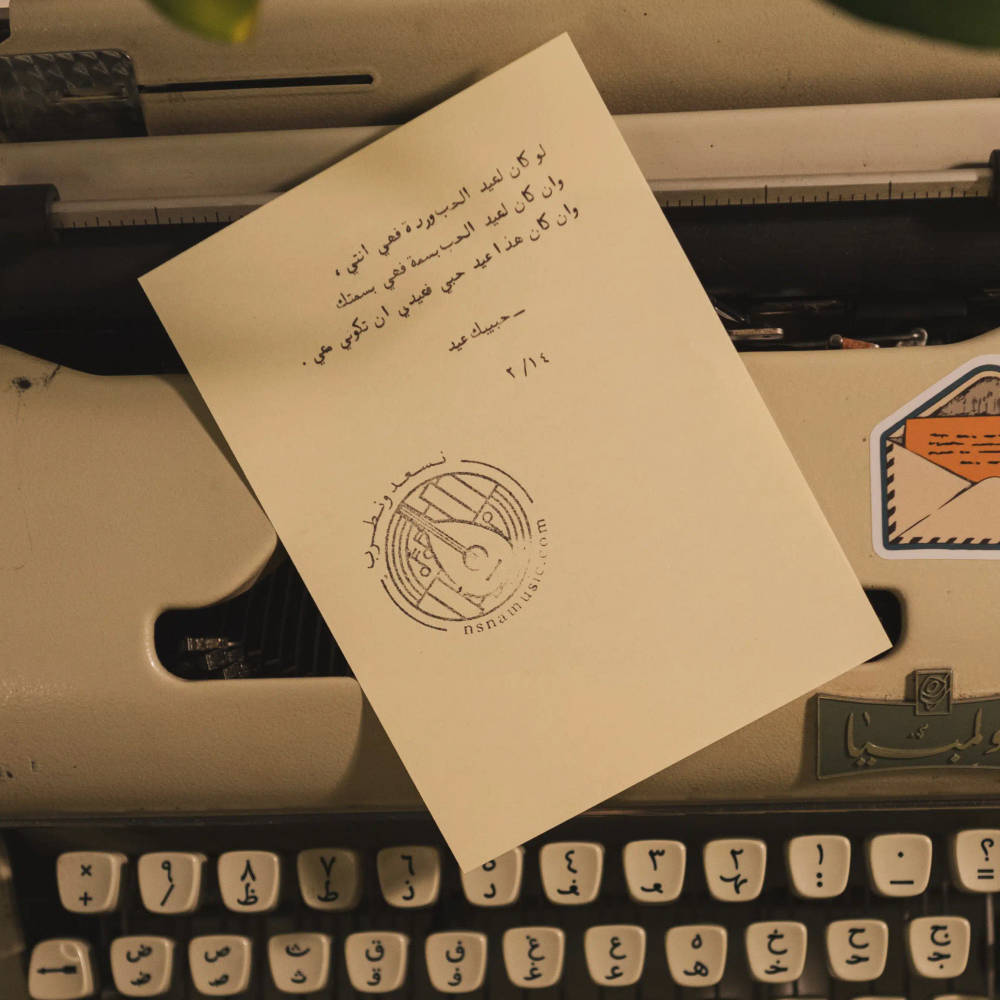 لو كان لعيد الحب وردة فهي انتي ،
وان كان لعيد الحب بسمة فهي بسمتك
وان كان هذا عيد حبي فعيدي ان تكوني معي .
_ حبيبك عيد
١٤/ ٢
نسعد ونطرب
nsnamusic.com
ولمبيا
× ٩ ٨ ٧ ٦ ٥ ٤ ٣ ٢ ! . ؟
+ / ظ ط ز د =